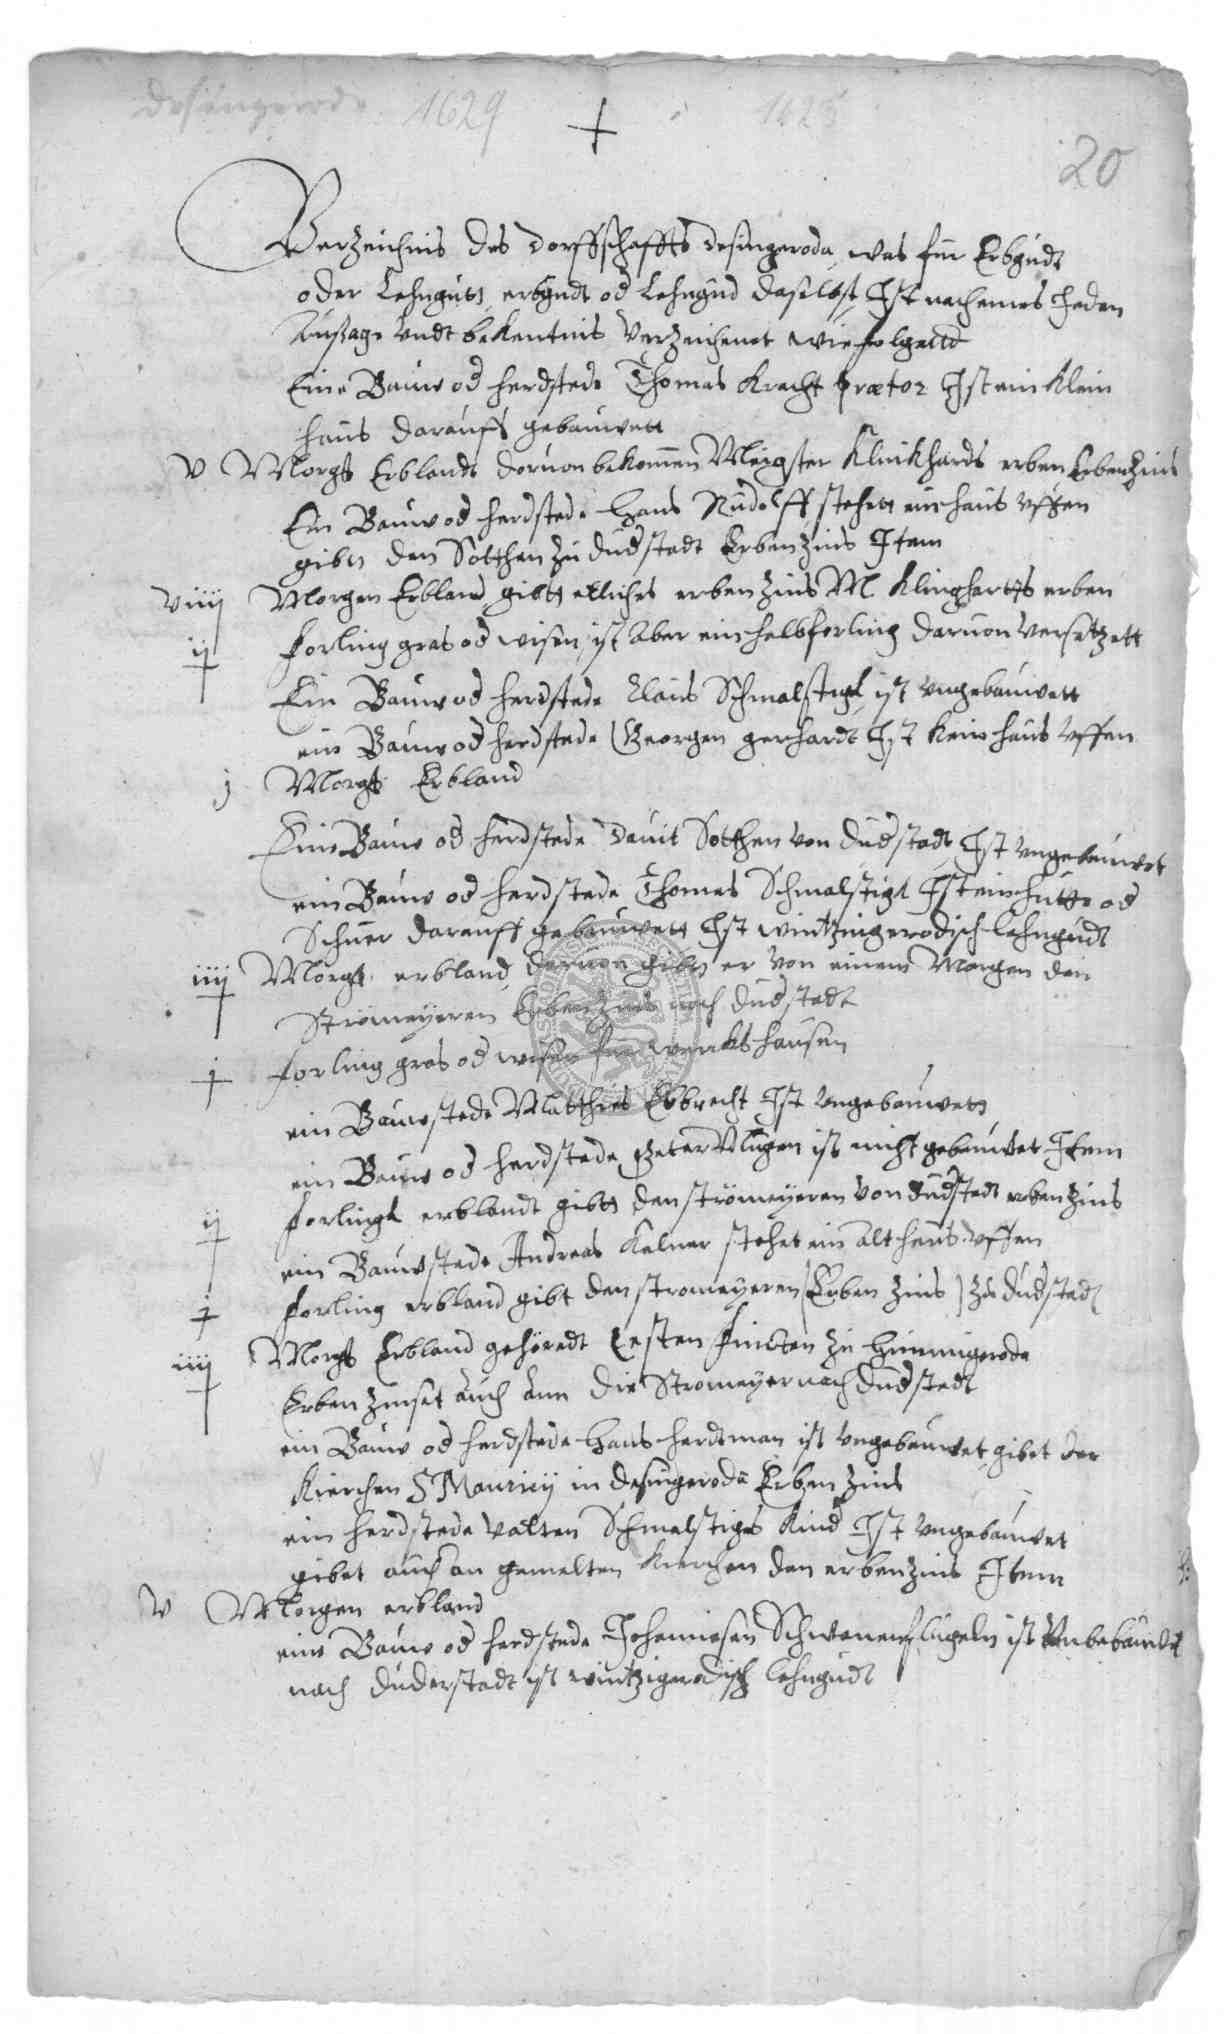 Desingerode 1629 1625
20
Verzeichnis des dorffschaffts Desingeroda, was für Erbgudt
oder Lehngutt, erbgudt od Lehngud daselbst Ist nach eines Jeden
Aussage vndt bekentnis verzeichenet wie folgettd
Eine Bauw od herdstede Thomas Kracht prætor Ist ein klein
haus darauff gebauwett
V Morgk Erblandt dorvon bekommen Meigster Klinkhards erben Erbenzins
Ein Bauw od herdstede Hans Rudolff stehett ein haus vffen
gibtt den Sotthen zu Dudstadt Erbenzins Item
viiij Morgen Erbland gibtt etliches erben zins M Klinghartts erben
ij forling gras od wisen, ist aber ein halb forling daruon versetzett
Ein Bauw od herdstede Claus Schmalstigk ist vngebauwett
ein Bauw od herdstede Georgen gerhardt Ist kein haus vffen
j Morgk Erbland
Eine Bauw od herdstede Dauit Sotthen von Dudstadt, Ist vngebauwet
ein Bauw od herdstede Thomas Schmalstigk Ist ein hutte od
Schuer darauff gebauwett Ist wintzingerodisch Lehngudt
iiij Morgk erbland, daruon gibtt er von einem Morgen den
Stromeyeren Erbenzins nach Dudstadt
j forling gras od wisen für wercks hausen
ein Bauwstede Matthies Ebbrecht Ist vngebauwett
ein Bauw od herdstede, Peter Mugen ist nicht gebauwet Item
ij forlingk erblandt gibtt den strömeyeren von Dudstadt erbenzins
ein Bauwstede Andreas Kelner stehet ein alt haus vffen
j forling erbland gibt den stromeyeren (Erben zins) zu Dudstadt
iiij Morgk Erbland gehöredt Cesten fincken zu Himmigeroda
Erben zinset auch Ann die Stromeyer nach Dudstadt
ein Bauw od herdstede Hans herdtman ist vngebauwet gibet der
Kierchen S Mauricij in Desingeroda Erben zins
ein herdstede Valten Schmalstiges Kind Ist vngebauwet
gibet auch an gemelten Kierchen den erbenzins Item
V Morgen erbland
eine Bauw od herdstede Johannesen Schwanenflugeln ist Vnbebauwet
nach Duderstadt ist wintzigerodisch Lehngudt